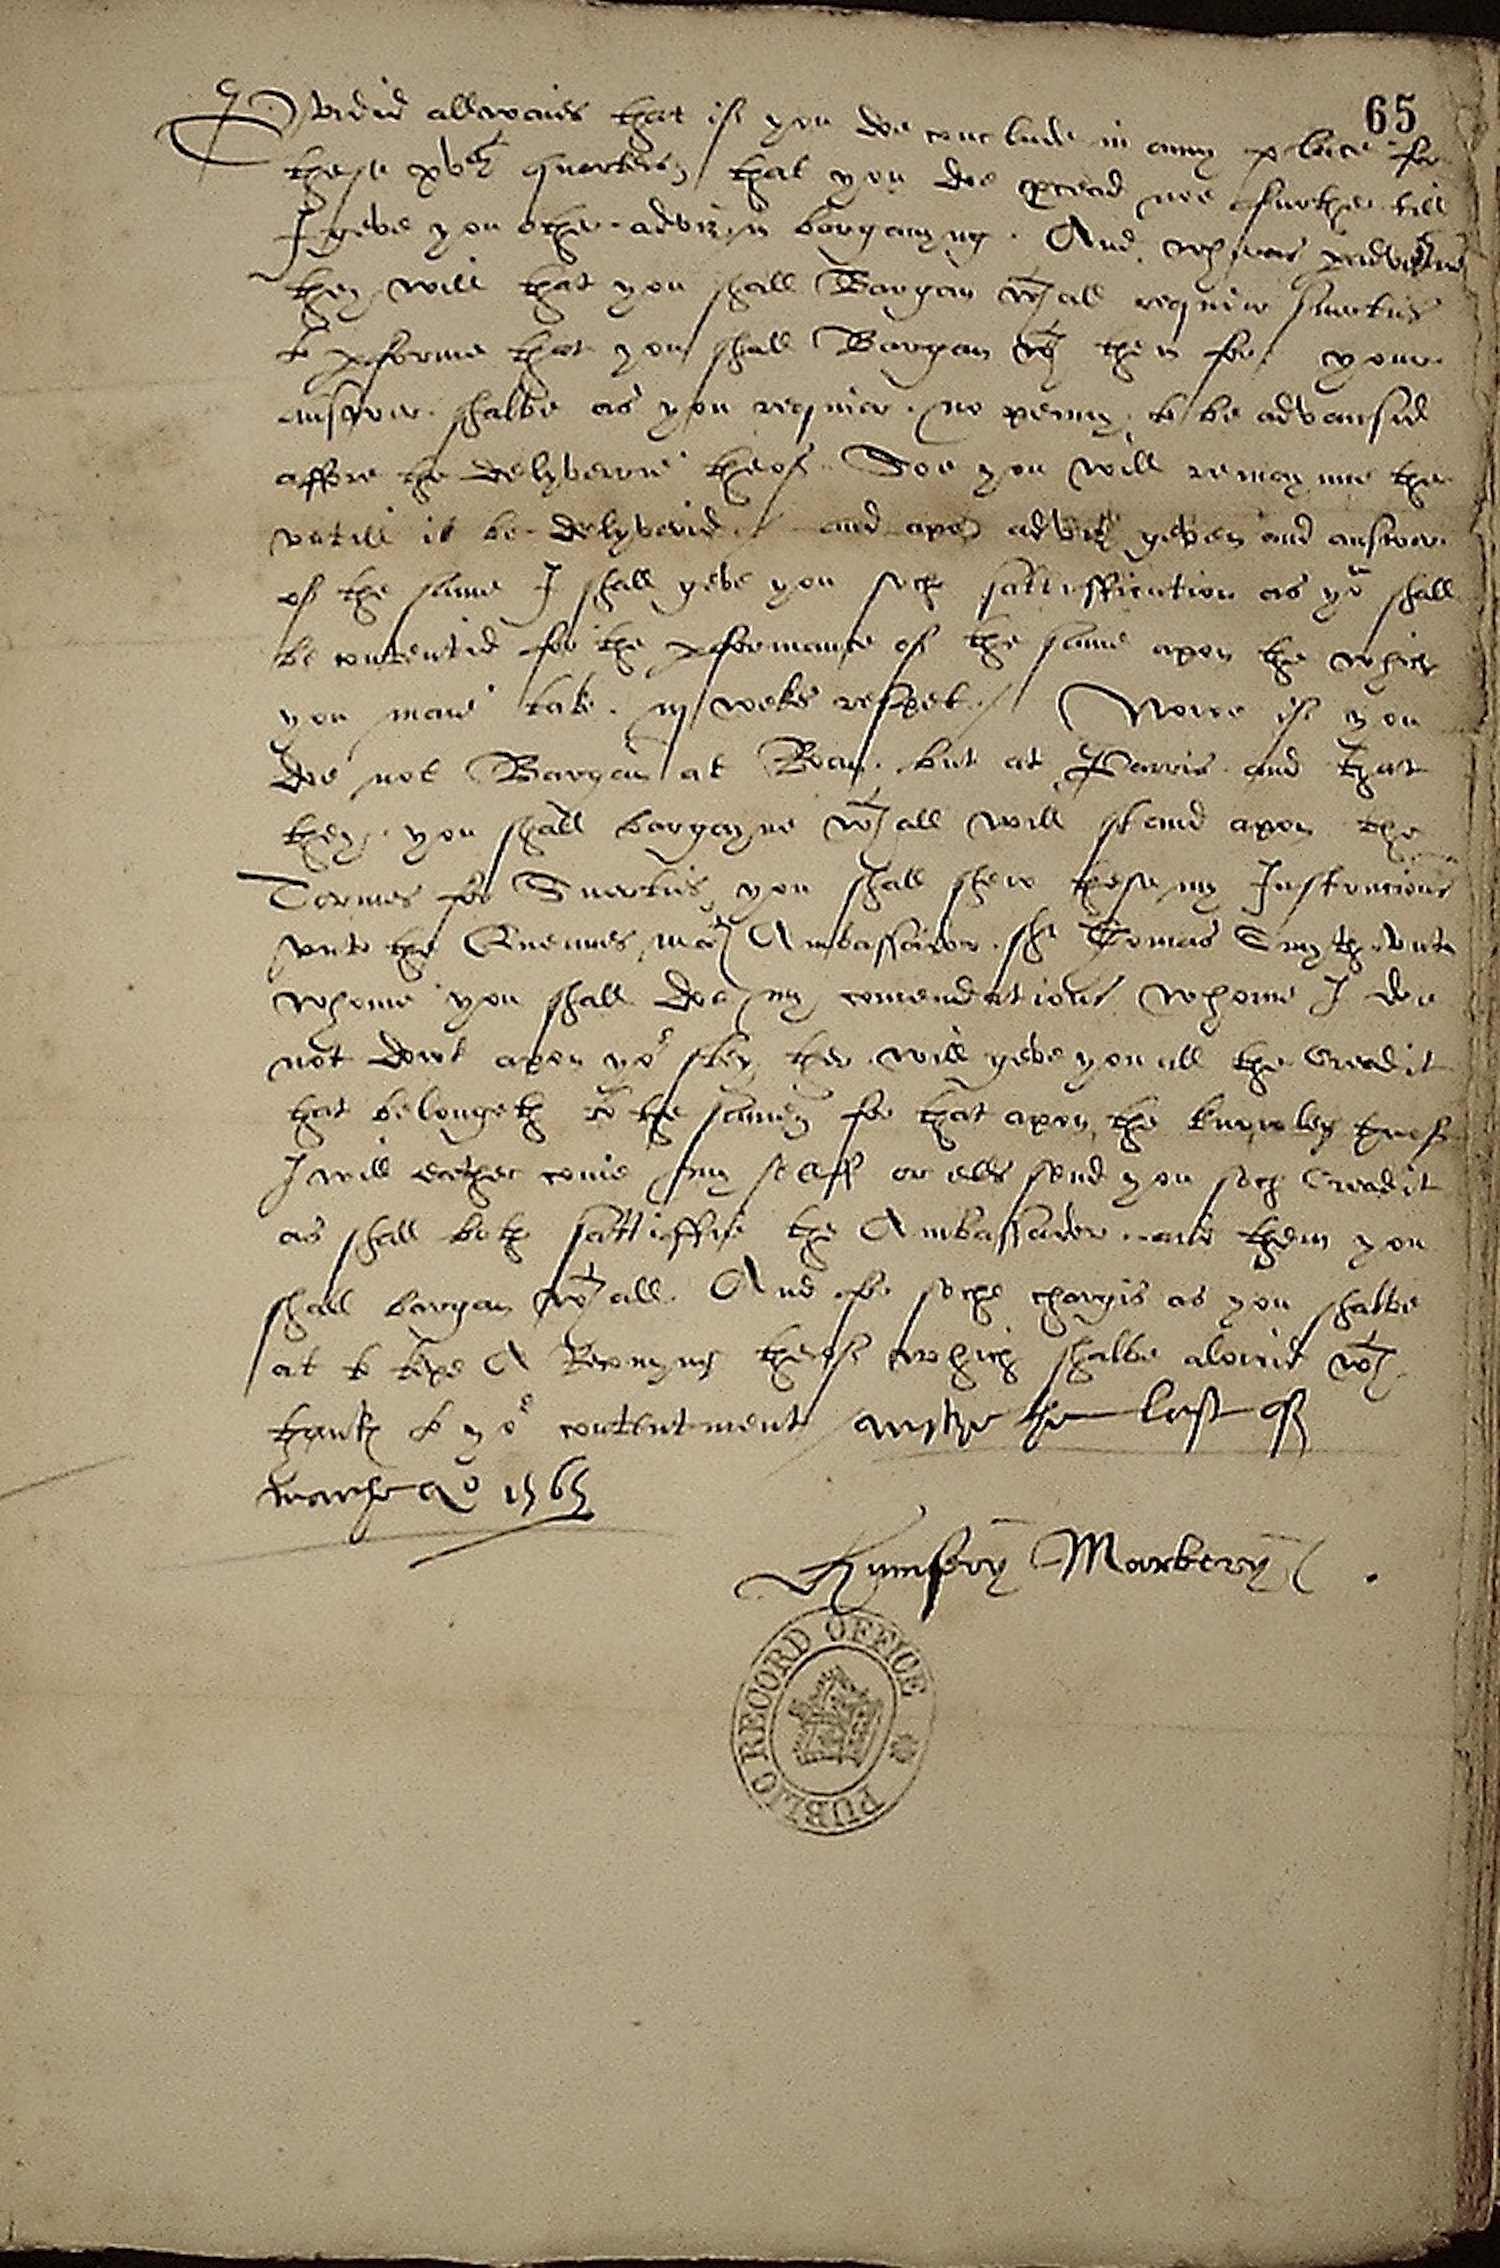 65
Provided allwaies that if you doe conclude in anny place for
these xv C quarters that you doe procead noe further till
I geve you other advize in bargayning. And wheras
they will that you shall Bargan wth all requier suerties
to pforme that you shall Bargan wth them for your
answer shalbe as you requier. no penny to be advansed
affore the delyverie therof. Soe you will remayne ther
untill it be delyverid. and apon advize geven and answer
of the same I shall geve you soch sattisfficcation as yor shall
be contentid for the pformance of the same apon the which
you maie take. iij wekes respet. Nowe if you
doe not Bargan at Roan. but at Parris. and that
they you shall bargayne wth all will stand apon the
Termes for Suerties you shall shew these my Instructions
unto the Quennes Matis Ambassador. Sr Thomas Smyth unto
whome you shall doe my comendations whome I doe
not dowt apon yor sley ther will geve you all the Creadit
that belongeth to the same for that apon the knowledg therof
I will eother come my sellff or ells send you soch Creadit
as shall both sattisffie the Ambassador and them you
shall bargan wth all. And for soche chargis as you shalbe
at to kepe A Reconyng therof which shalbe alowid wth
thanks to yor contentment wrytten the last of
marche Ao 1565
Humfrey Marbery
PUBLIC RECORD OFFICE